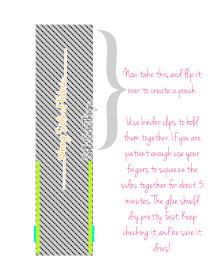 Now take this and flip it
over to create a pouch
Use binder clips to hold
them together. If you are
patient enough use your
fingers to squeeze the
sides together for about 3
minutes. The glue should
dry pretty fast. Keep
checking it and be sure it
dries!